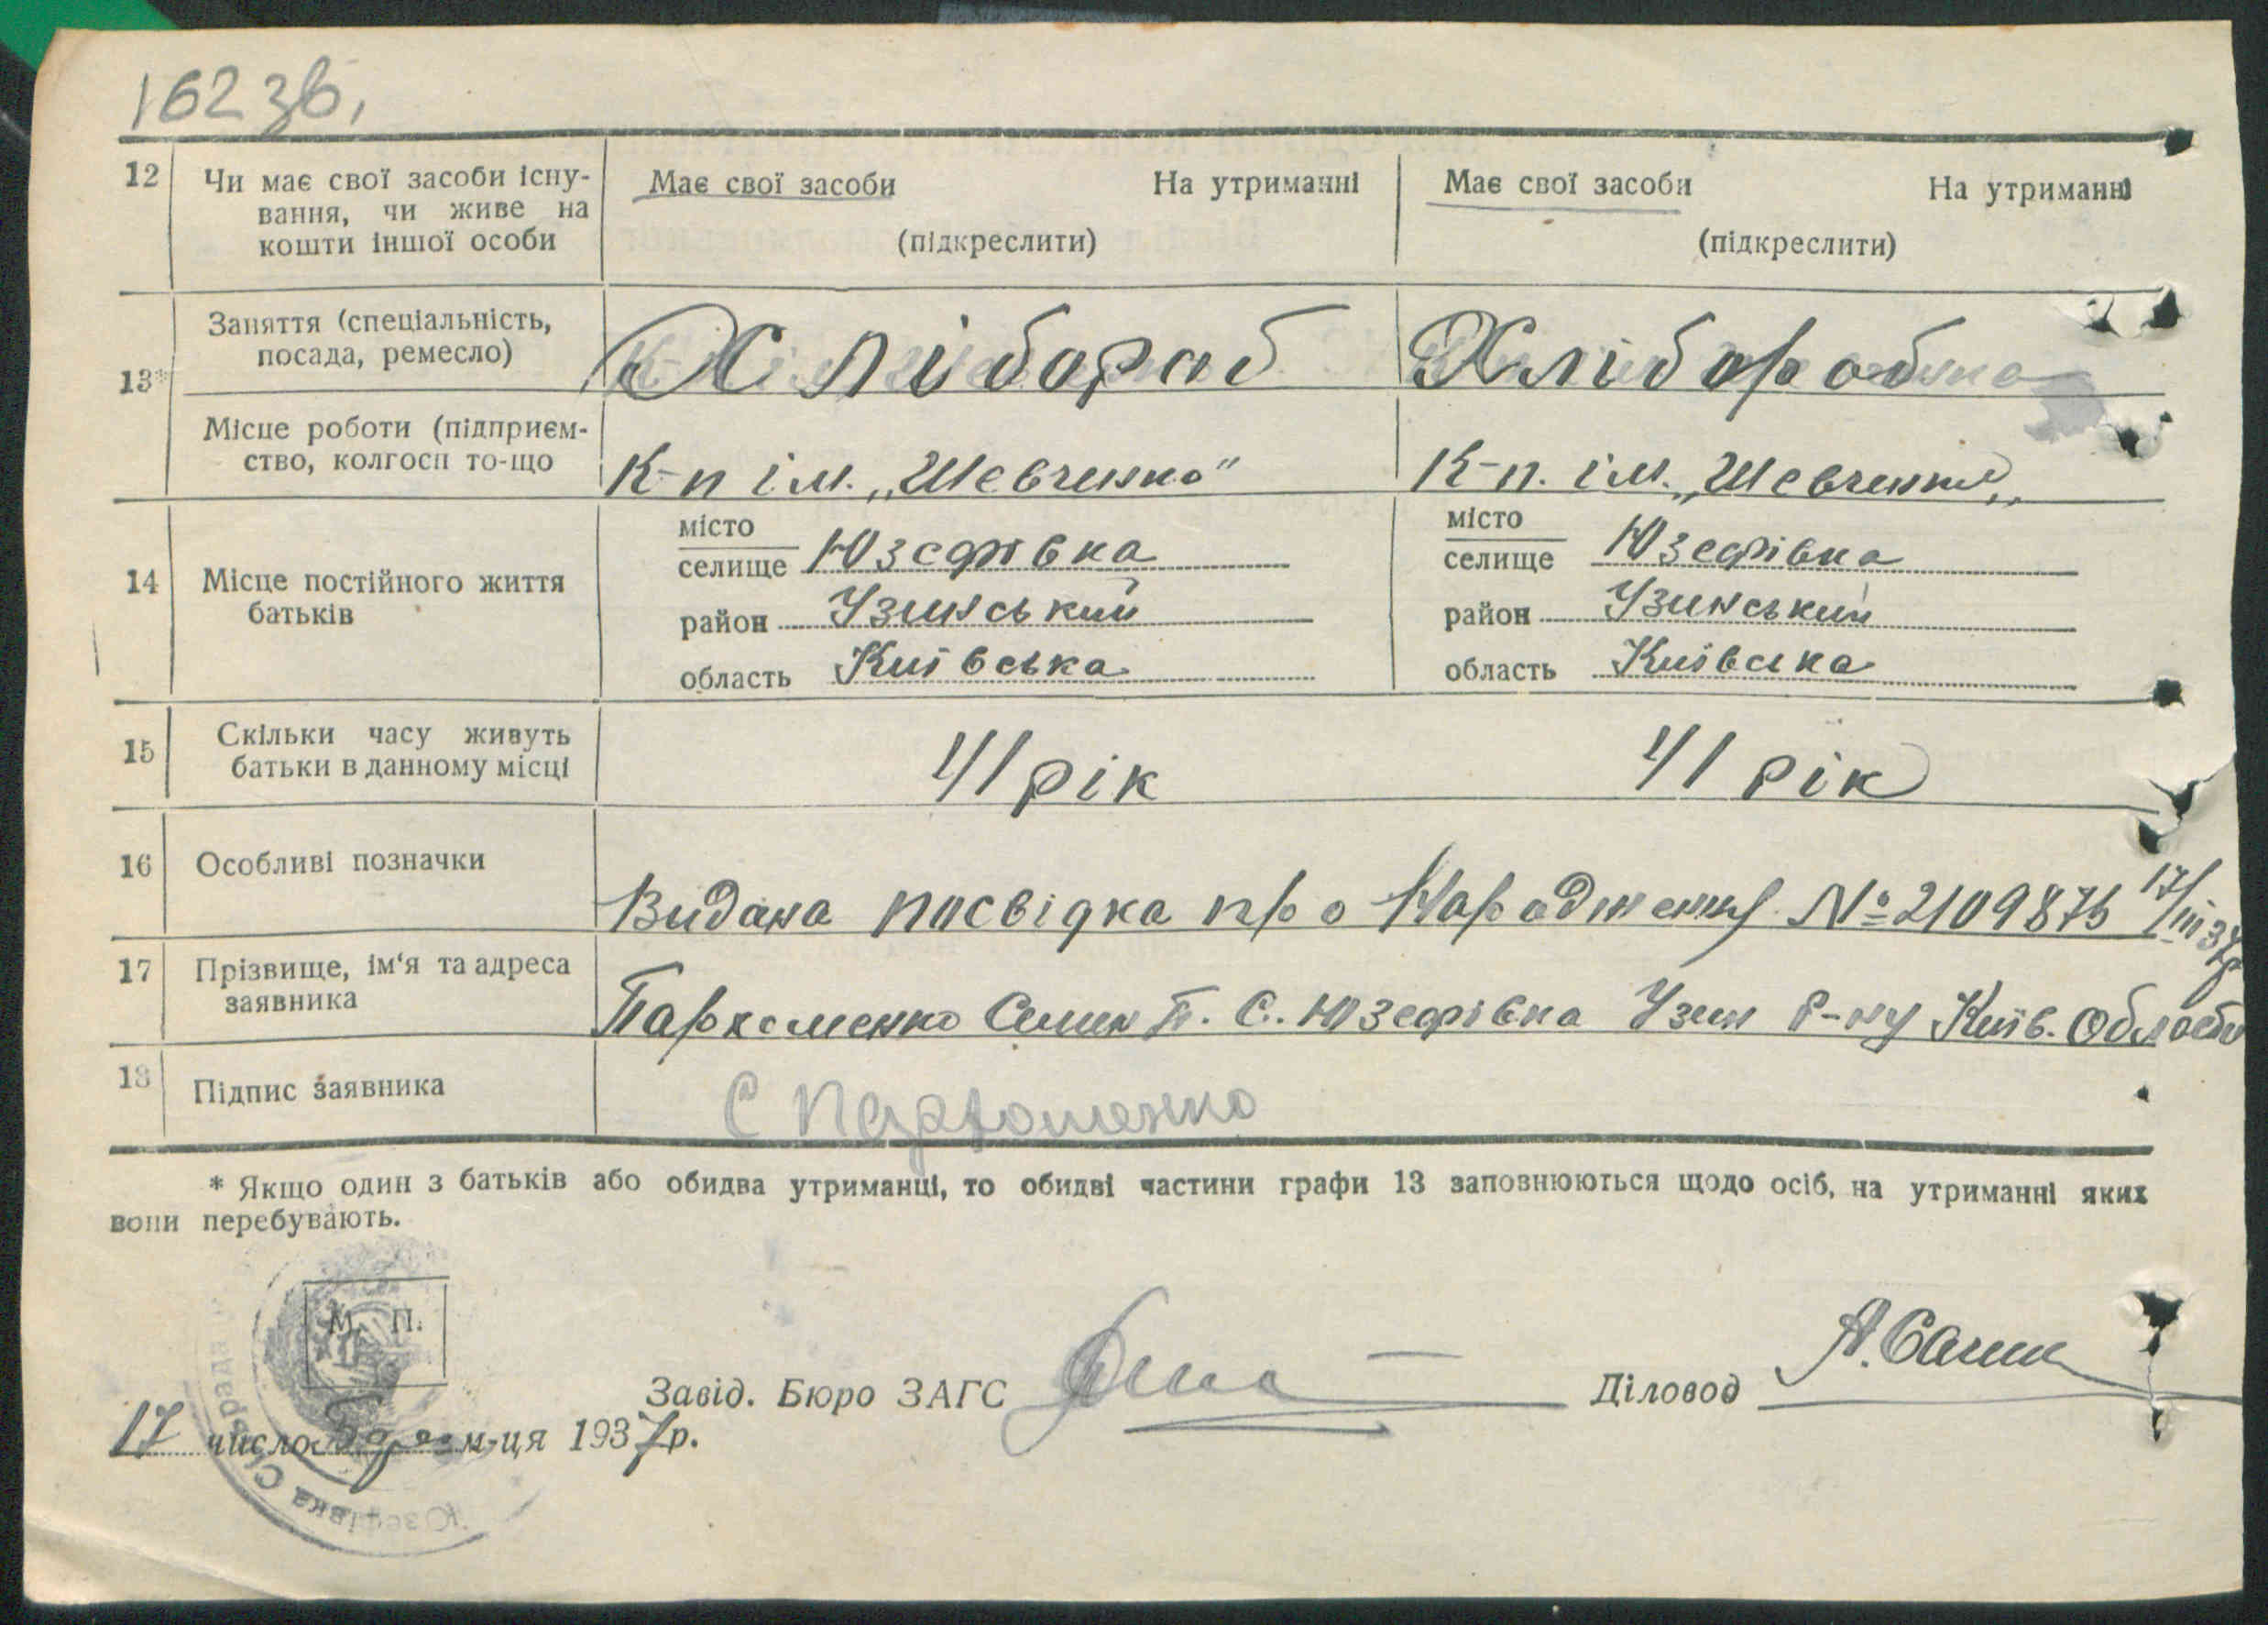 162 зв,
12 Чи має свої засоби існу-
вання, чи живе на
кошти іншої особи
Має свої засоби На утриманні
(підкреслити)
Має свої засоби На утриманні
(підкреслити)
13*
Заняття (спеціальність,
посада, ремесло)
Хлібораб Хліборобка
Місце роботи (підприєм-
ство, колгосп то-що
К-п ім. „Шевченко" К-п. ім. „Шевченко„
14 Місце постійного життя
батьків
місто
селище Юзефівка
район Узинський
область Київська
місто
селище Юзефівка
район Узинський
область Київська
15 Скільки часу живуть
батьки в данному місці
41 рік 41 рік
16 Особливі позначки
Видана посвідка про Народження № 2109875 17/III 37р
17 Прізвище, ім'я та адреса
заявника
Пархоменко Семен Т. С. Юзефівка Узин р-ну Київ. Области
18 Підпис заявника
С Пархоменко
* Якщо один з батьків або обидва утриманці, то обидві частини графи 13 заповнюються щодо осіб, на утриманні яких
вони перебувають.
М. П.
Завід. Бюро ЗАГС
Діловод
17 число м-ця 1937р.
Юзефівка Сільрада